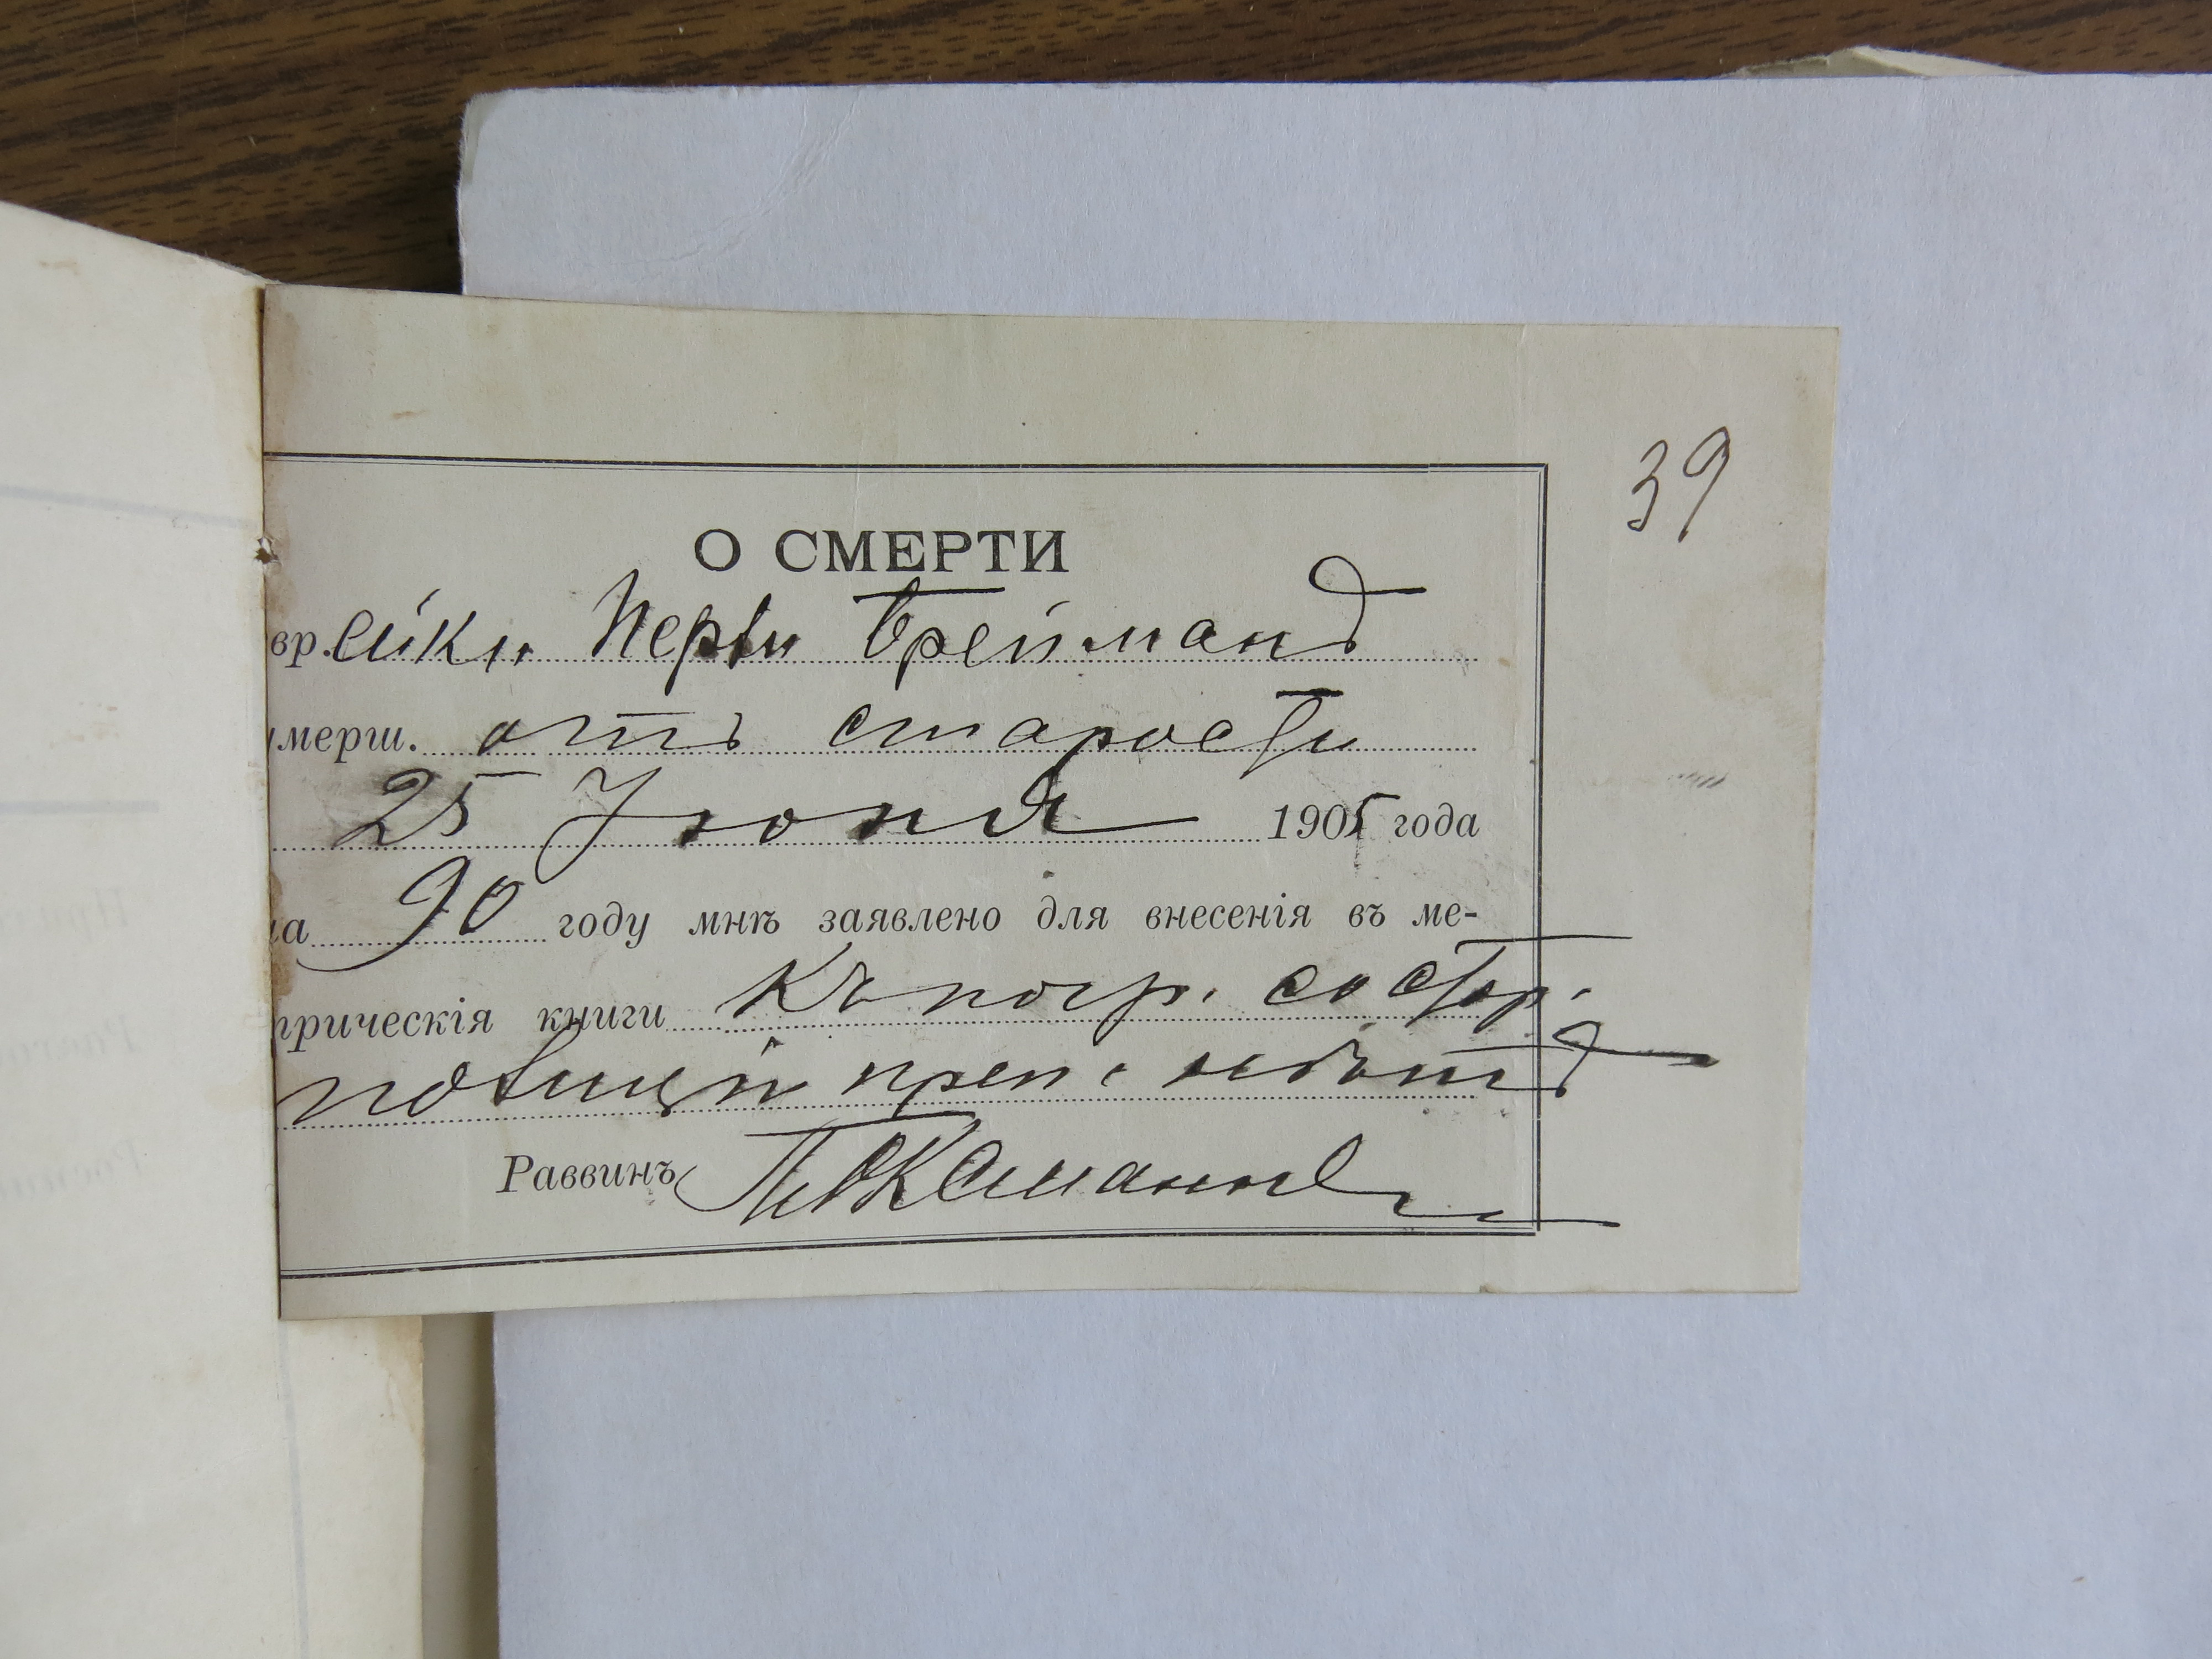 39
О СМЕРТИ
евр. ейки Перли Брейманъ
умерш. отъ старости
25 Іюня 1905 года
на 90 году мнѣ заявлено для внесенія въ ме-
трическія книги Къ погр. со стор.
полиціи преп. нѣтъ
Раввинъ